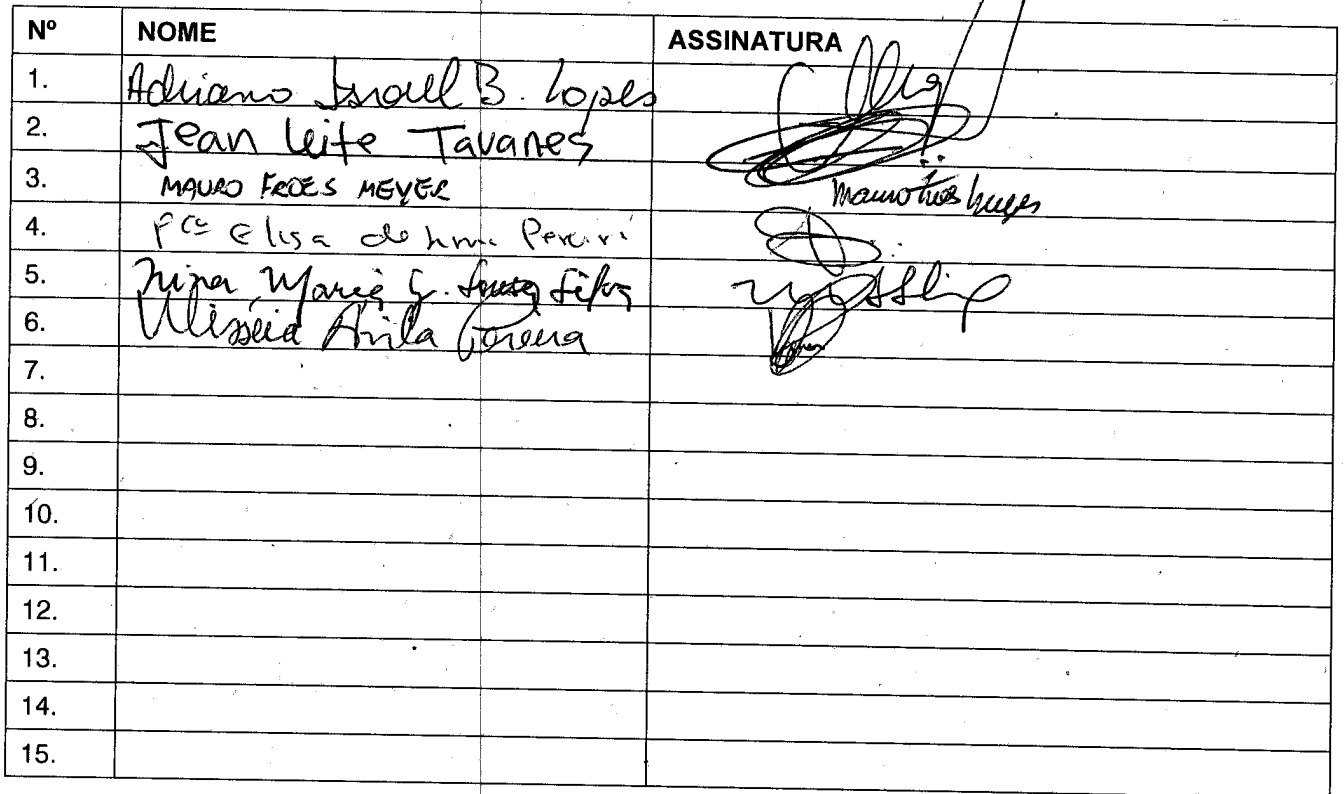 Nº NOME ASSINATURA
1. Adriano Israel B. Lopes
2. Jean Leite Tavares
3. MAURO FROES MEYER Mauro Froes Meyer
4. Fca Elisa de Lima Pereira
5. Maria G. Sousa Silva
6. Ulisséia Ávila Pereira
7.
8.
9.
10.
11.
12.
13.
14.
15.